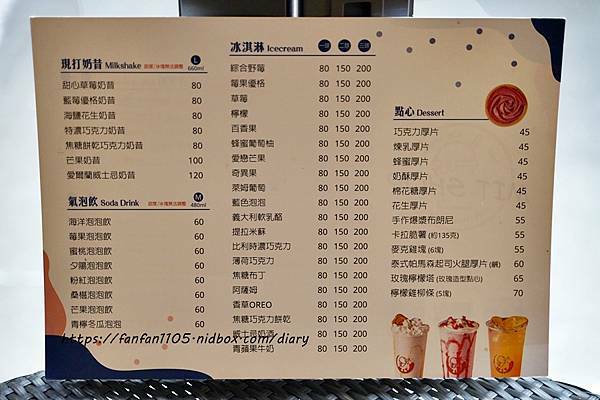 現打奶昔 Milkshake 甜度/冰塊無法調整 L 660ml
甜心草莓奶昔 80
藍莓優格奶昔 80
海鹽花生奶昔 80
特濃巧克力奶昔 80
焦糖餅乾巧克力奶昔 80
芒果奶昔 100
愛爾蘭威士忌奶昔 120
氣泡飲 Soda Drink 甜度/冰塊無法調整 M 480ml
海洋泡泡飲 60
莓果泡泡飲 60
蜜桃泡泡飲 60
夕陽泡泡飲 60
粉紅泡泡飲 60
桑椹泡泡飲 60
芒果泡泡飲 60
青檸冬瓜泡泡 60
冰淇淋 Icecream 一球 二球 三球
綜合野莓 80 150 200
莓果優格 80 150 200
草莓 80 150 200
檸檬 80 150 200
百香果 80 150 200
蜂蜜葡萄柚 80 150 200
愛戀芒果 80 150 200
奇異果 80 150 200
萊姆葡萄 80 150 200
藍色泡泡 80 150 200
義大利軟乳酪 80 150 200
提拉米蘇 80 150 200
比利時濃巧克力 80 150 200
薄荷巧克力 80 150 200
焦糖布丁 80 150 200
阿薩姆 80 150 200
香草OREO 80 150 200
焦糖巧克力餅乾 80 150 200
威士忌奶酒 80 150 200
青蘋果牛奶 80 150 200
點心 Dessert
巧克力厚片 45
煉乳厚片 45
蜂蜜厚片 45
奶酥厚片 45
棉花糖厚片 45
花生厚片 45
手作爆漿布朗尼 55
卡拉脆薯 (約135克) 55
麥克雞塊 (6塊) 55
泰式帕馬森起司火腿厚片 (鹹) 60
玫瑰檸檬塔 (玫瑰造型點心) 65
檸檬雞柳條 (5塊) 70
https://fanfan1105.nidbox.com/diary